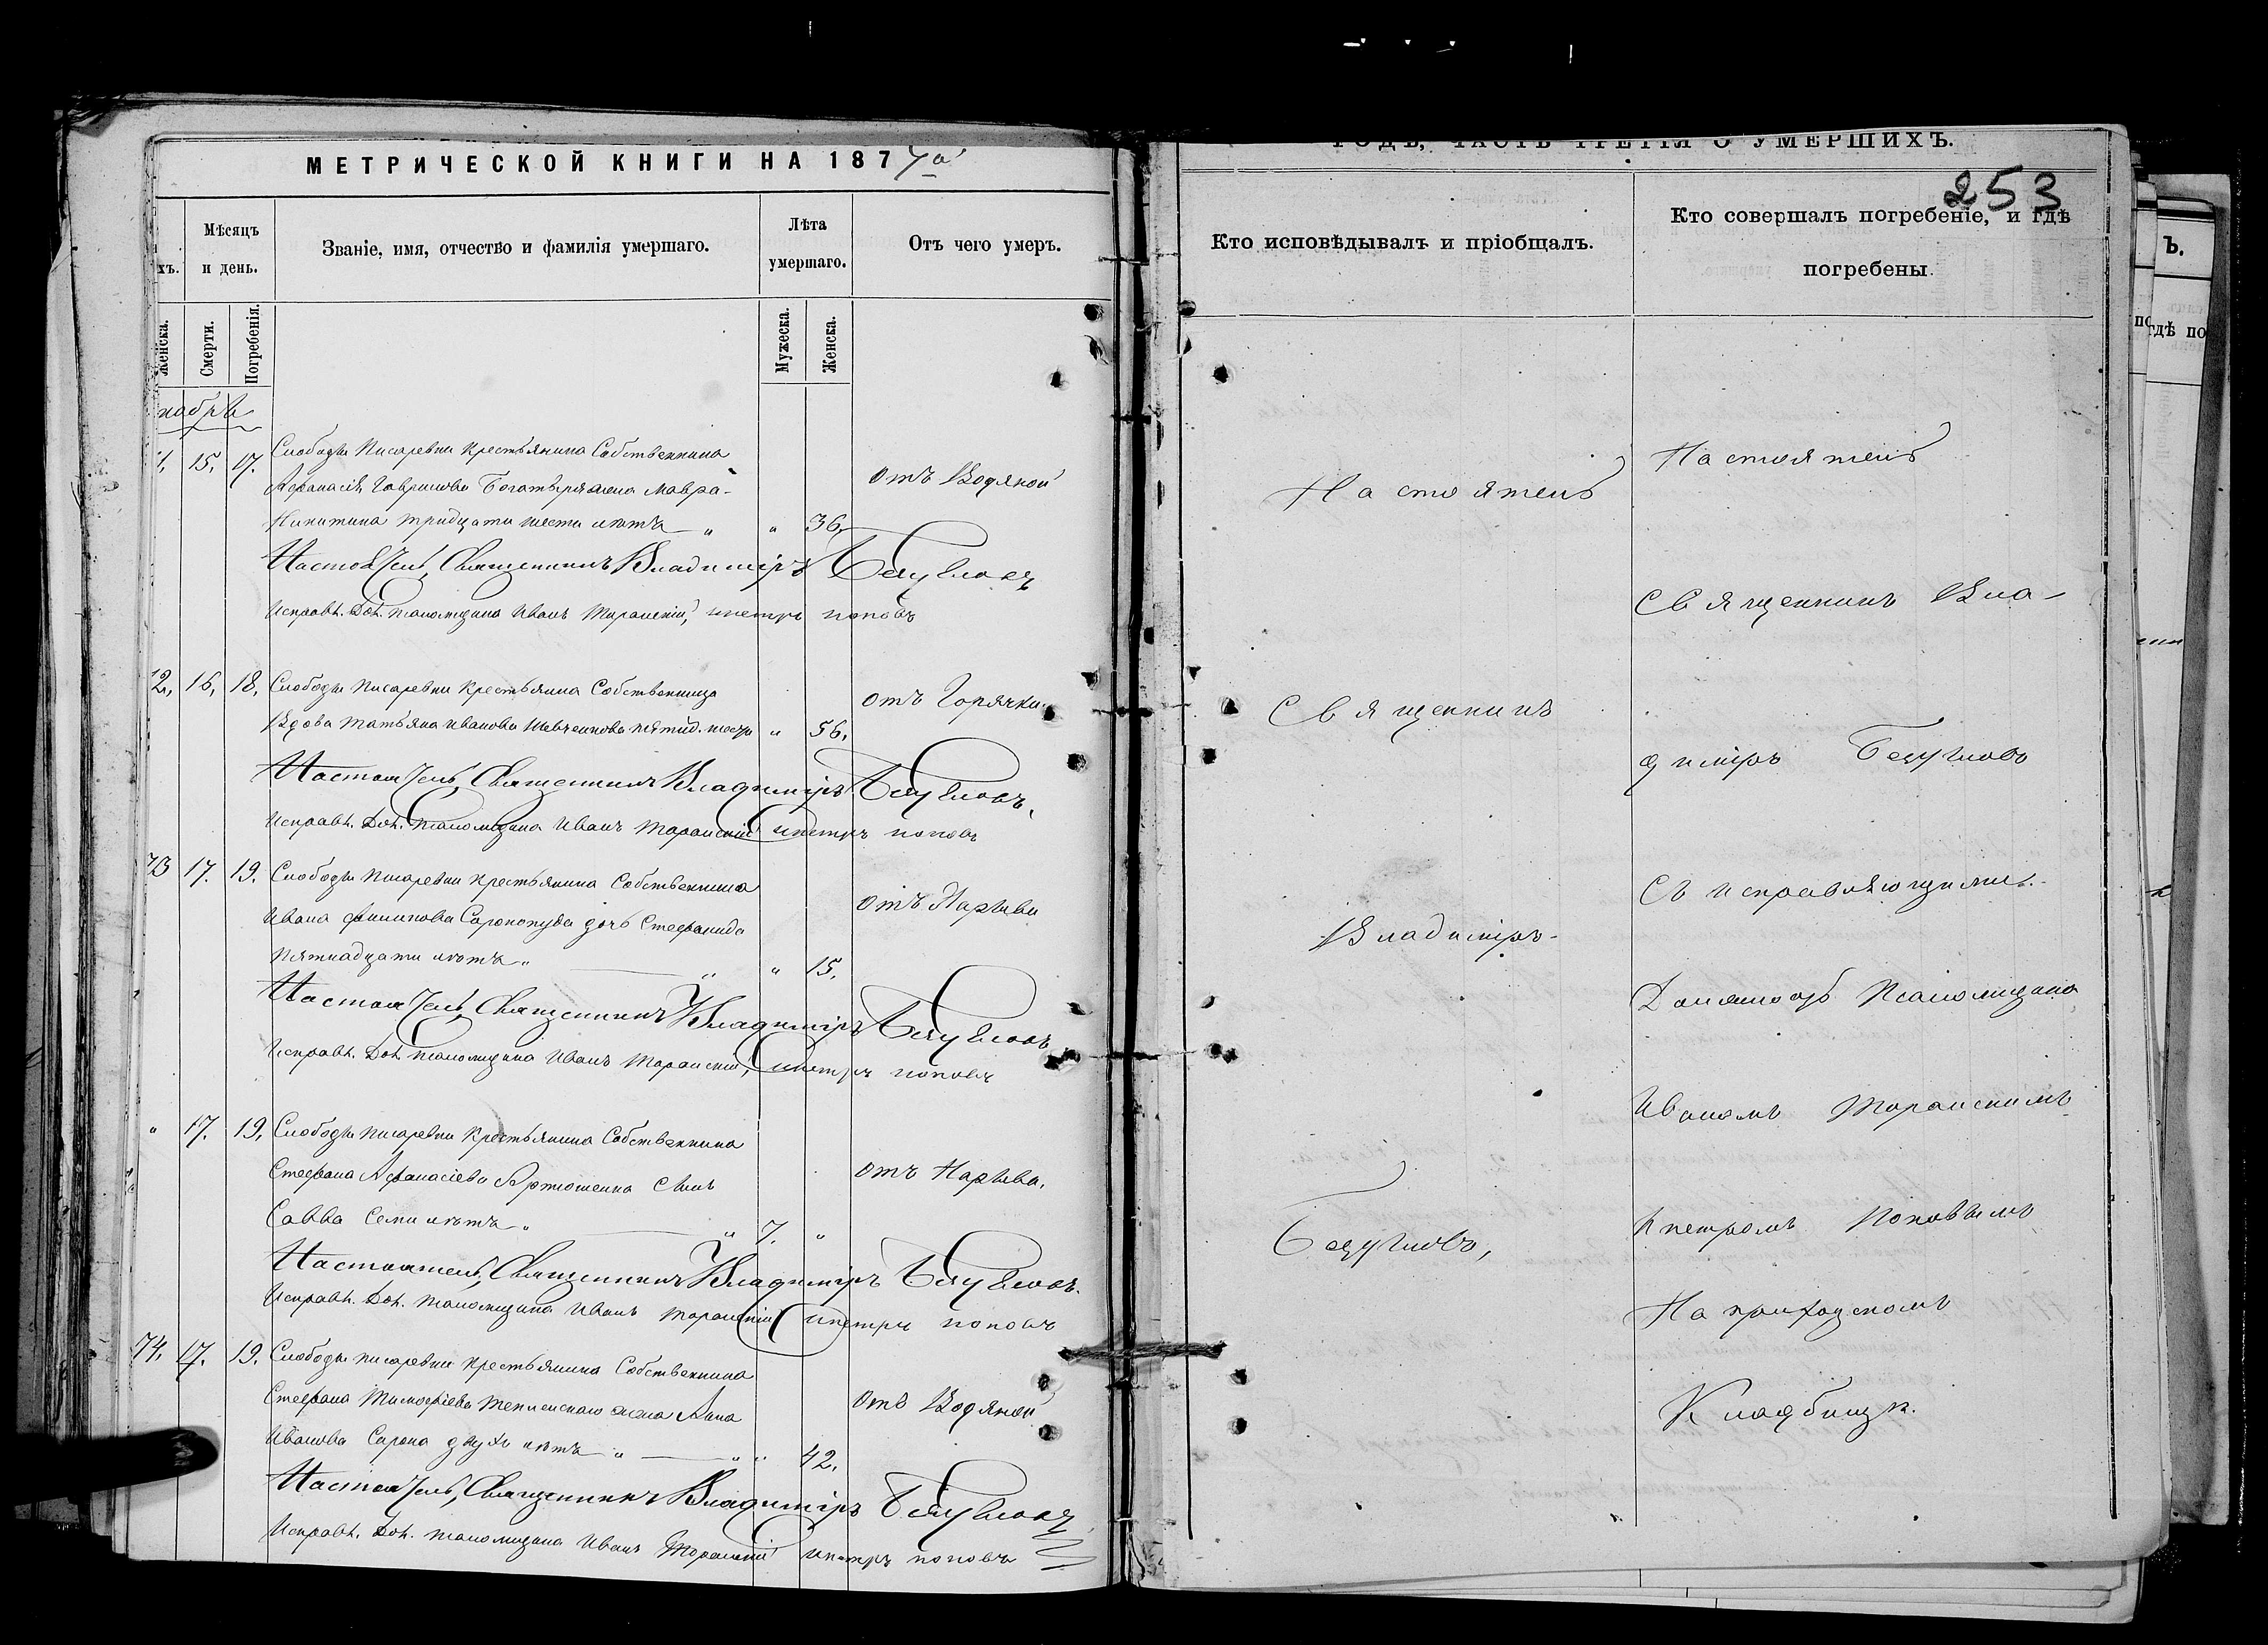 МЕТРИЧЕСКОЙ КНИГИ НА 1877й
ГОДЪ, ЧАСТЬ ТРЕТІЯ О УМЕРШИХЪ.
253
хъ.
Мѣсяцъ и день.
Званіе, имя, отчество и фамилія умершаго.
Лѣта умершаго.
Отъ чего умеръ.
Кто исповѣдывалъ и пріобщалъ.
Кто совершалъ погребеніе, и гдѣ
погребены.
Женска.
Смерти.
Погребенія.
Мужеска.
Женска.
Ъ.
гдѣ по
ноября
1. 15. 17. Слободы Писаревки Крестьянина Собственника
Афанасія Гаврилова жена Мавра
Никитина тридцати шести лѣтъ „ „ 36.
отъ Водяной
Настоятель, Священникъ Владиміръ Безугловъ
Исправл. Дол. Псаломщика Иванъ и Петръ Поповъ
2. 16. 18. Слободы Писаревки Крестьянина Собственница
Вдова Татьяна Иванова Шевченкова пятид. шесть „ 56.
отъ Горячки.
Настоятель, Священникъ Владиміръ Безугловъ.
Исправл. Дол. Псаломщика Иванъ и Петръ Поповъ
73 17. 19. Слободы Писаревки Крестьянина Собственника
Ивана Филипова дочь Стефанида
Пятнадцати лѣтъ „ „ „ 15.
отъ Нарыва
Настоятель, Священникъ Владиміръ Безугловъ
Исправл. Дол. Псаломщика Иванъ и Петръ Поповъ
„ 17. 19. Слободы Писаревки Крестьянина Собственника
Стефана Афанасіева Артюшенка Сынъ
Савва Семи лѣтъ „ „ 7. „
отъ Нарыва.
Настоятель, Священникъ Владиміръ Безугловъ.
Исправл. Дол. Псаломщика Иванъ и Петръ Поповъ
74. 17. 19. Слободы Писаревки Крестьянина Собственника
Стефана Тимофіева жена Анна
Иванова Сорока двухъ лѣтъ „ „ „ 42.
отъ Водяной
Настоятель, Священникъ Владиміръ Безугловъ
Исправл. Дол. Псаломщика Иванъ и Петръ Поповъ
Настоятель
Священникъ
Владиміръ
Безугловъ,
Настоятель
Священникъ Вла-
диміръ Безугловъ
Съ исправляющими
Должность Псаломщика
Иваномъ
и Петромъ Поповымъ
На приходскомъ
Кладбищѣ.